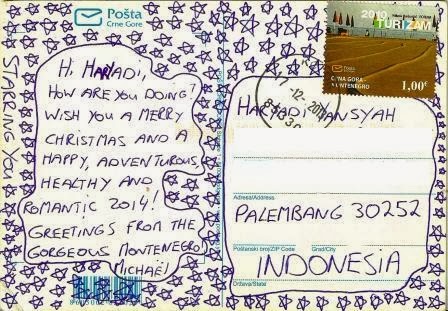 Pošta
Crne Gore
STARRING YOU
Hi HARIADI,
HOW ARE YOU DOING?
WISH YOU A MERRY
CHRISTMAS AND A
HAPPY, ADVENTUROUS,
HEALTHY AND
ROMANTIC 2014!
GREETINGS FROM THE
GORGEOUS MONTENEGRO,
MICHAËL
2010
TURIZAM
CRNA GORA
MONTENEGRO
1,00€
HARIADI
Adresa/Address
PALEMBANG 30252
Poštanski broj/ZIP Code Grad/City
INDONESIA
Država/State